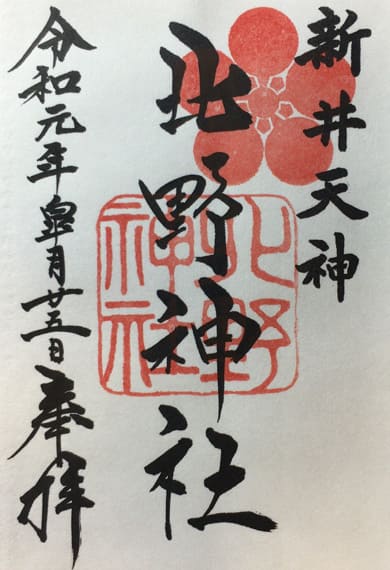 新井天神
北野神社
令和元年皐月廿五日奉拝